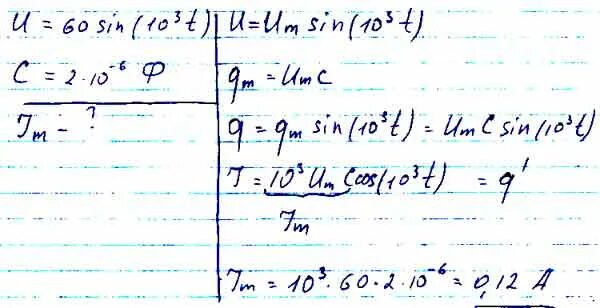 U = 60 sin(10³t)
C = 2·10⁻⁶ Ф
Im - ?
U = Um sin(10³t)
qm = UmC
q = qm sin(10³t) = UmC sin(10³t)
I = 10³ Um C cos(10³t) = q'
Im
Im = 10³·60·2·10⁻⁶ = 0,12 А